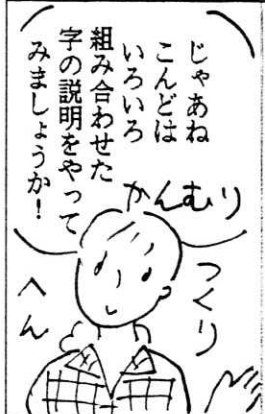 じゃあね
こんどは
いろいろ
組み合わせた
字の説明をやって
みましょうか！
かんむり
つくり
へん